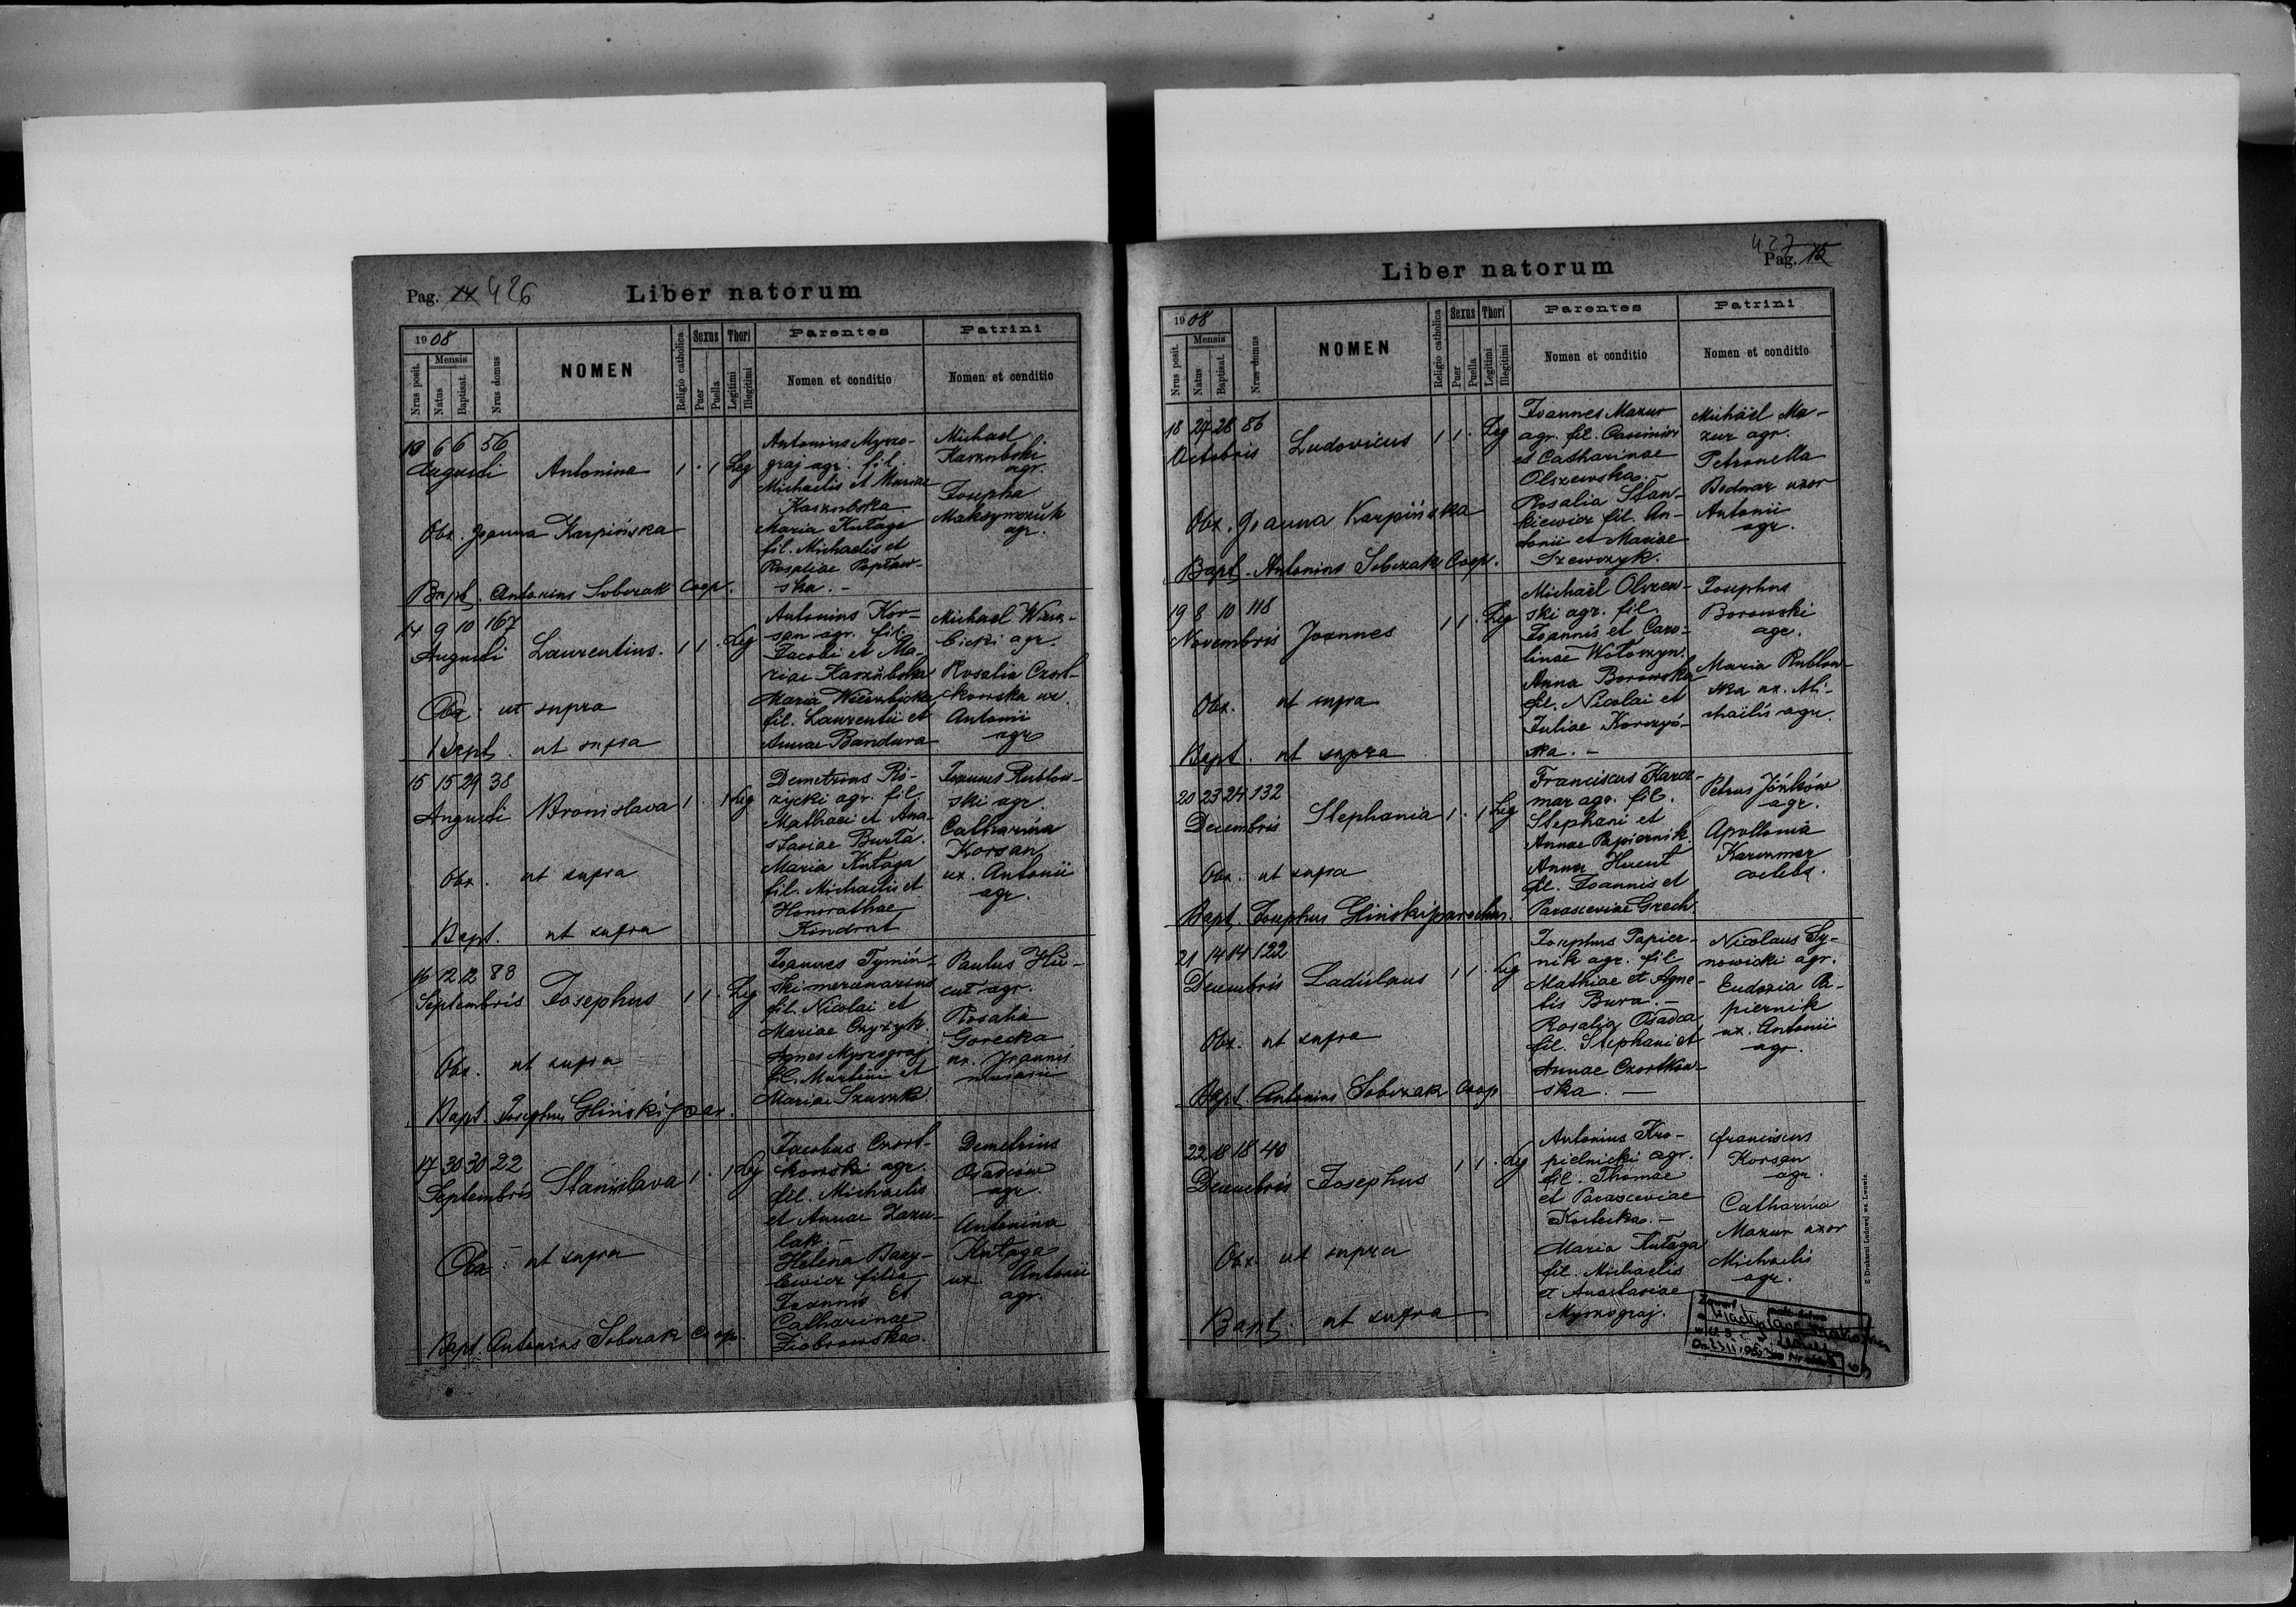 Pag. 14 426
Liber natorum
1908
Nrus posit.
Mensis
Natus
Baptisat.
Nrus domus
NOMEN
Religio catholica
Sexus
Puer
Puella
Thori
Legitimi
Illegitimi
Parentes
Nomen et conditio
Patrini
Nomen et conditio
13 6 6 56
Augusti
Antonina
1 . 1 Leg
Antonius Myszo-
graj agr. fil.
Michaelis et Mariae
Kaszubska
Maria Kutaga
fil. Michaelis et
Rosaliae Popław-
ska. -
Michael
Kaszubski
agr.
Josepha
Maksymczuk
agr.
Obx. Joanna Karpińska
Bapt. Antonius Sobczak Coop.
14 9 10 167
Augusti
Laurentius.
1 1 . Leg
Antonius Kor-
san agr. fil.
Jacobi et Ma-
riae Kaszubska
Maria Wierzbicka
fil. Laurentii et
Annae Bandura
Michael Wierz-
bicki agr.
Rosalia Czort-
kowska ux.
Antonii
agr.
Obx. ut supra
Bapt. ut supra
15 15 29 38
Augusti
Bronislava
1 . 1 Leg
Demetrius Ró-
życki agr. fil.
Mathaei et Ana-
stasiae Burta.
Maria Kutaga
fil. Michaelis et
Honorathae
Kondrat
Joannes Rublow-
ski agr.
Catharina
Korsan
ux. Antonii
agr.
Obx. ut supra
Bapt. ut supra
16 12 12 88
Septembris
Josephus
1 1 . Leg
Joannes Tymiń-
ski mercenarius
fil. Nicolai et
Mariae Onyzyk.
Agnes Myszograj
fil. Martini et
Mariae
Paulus Hu-
cut agr.
Rosalia
Gorecka
ux. Joannis
Obx. ut supra
Bapt. Josephus Gliński par.
17 30 30 22
Septembris
Stanislava
1 . 1 Leg
Jacobus Czort-
kowski agr.
fil. Michaelis
et Annae Lazu-
lak. -
Helena Bazy-
lewicz filia
Joannis et
Catharinae
Ziobrowska.
Demetrius
Osadcow
agr.
Antonina
Kutaga
ux. Antonii
agr.
Obx. ut supra
Bapt. Antonius Sobczak Coop.
427
Pag. 15
Liber natorum
1908
Nrus posit.
Mensis
Natus
Baptisat.
Nrus domus
NOMEN
Religio catholica
Sexus
Puer
Puella
Thori
Legitimi
Illegitimi
Parentes
Nomen et conditio
Patrini
Nomen et conditio
18 27 28 86
Octobris
Ludovicus
1 1 . Leg
Joannes Mazur
agr. fil. Casimiri
et Catharinae
Olszewska. -
Rosalia Stan-
kiewicz fil. An-
tonii et Mariae
Szewczyk.
Michaël Ma-
zur agr.
Petronella
Bednar uxor
Antonii
agr.
Obx. Joanna Karpińska
Bapt. Antonius Sobczak Coop.
19 8 10 118
Novembris
Joannes
1 1 . Leg
Michaël Olszew-
ski agr. fil.
Joannis et Caro-
linae Wołoszyn.
Anna Borowska
fil. Nicolai et
Juliae Korczyń-
ska. -
Josephus
Borowski
agr.
Maria Rublow-
ska ux. Mi-
chaëlis agr.
Obx. ut supra
Bapt. ut supra
20 23 24 132
Decembris
Stephania
1 . 1 Leg
Franciscus Karcz-
mar agr. fil.
Stephani et
Annae Papiernik.
Anna Hucut
fil. Joannis et
Parasceviae Grech
Petrus Jónków
agr.
Apollonia
Karczmar
coelebs.
Obx. ut supra
Bapt. Josephus Gliński parochus.
21 14 14 122
Decembris
Ladislaus
1 1 . Leg
Josephus Papier-
nik agr. fil.
Mathiae et Agne-
tis Bura. -
Rosalia Osadca
fil. Stephani et
Annae Czortkow-
ska. -
Nicolaus Sy-
nowicki agr.
Eudoxia Pa-
piernik
ux. Antonii
agr.
Obx. ut supra
Bapt. Antonius Sobczak Coop
22 18 18 40
Decembris
Josephus
1 1 . Leg
Antonius Kro-
pielnicki agr.
fil. Thomae
et Parasceviae
Kostecka. -
Maria Kutaga
fil. Michaelis
et Anastasiae
Myszograj.
Franciscus
Korsan
agr.
Catharina
Mazur uxor
Michaelis
agr.
Obx. ut supra
Bapt. ut supra
Z Drukarni Ludowej we Lwowie.